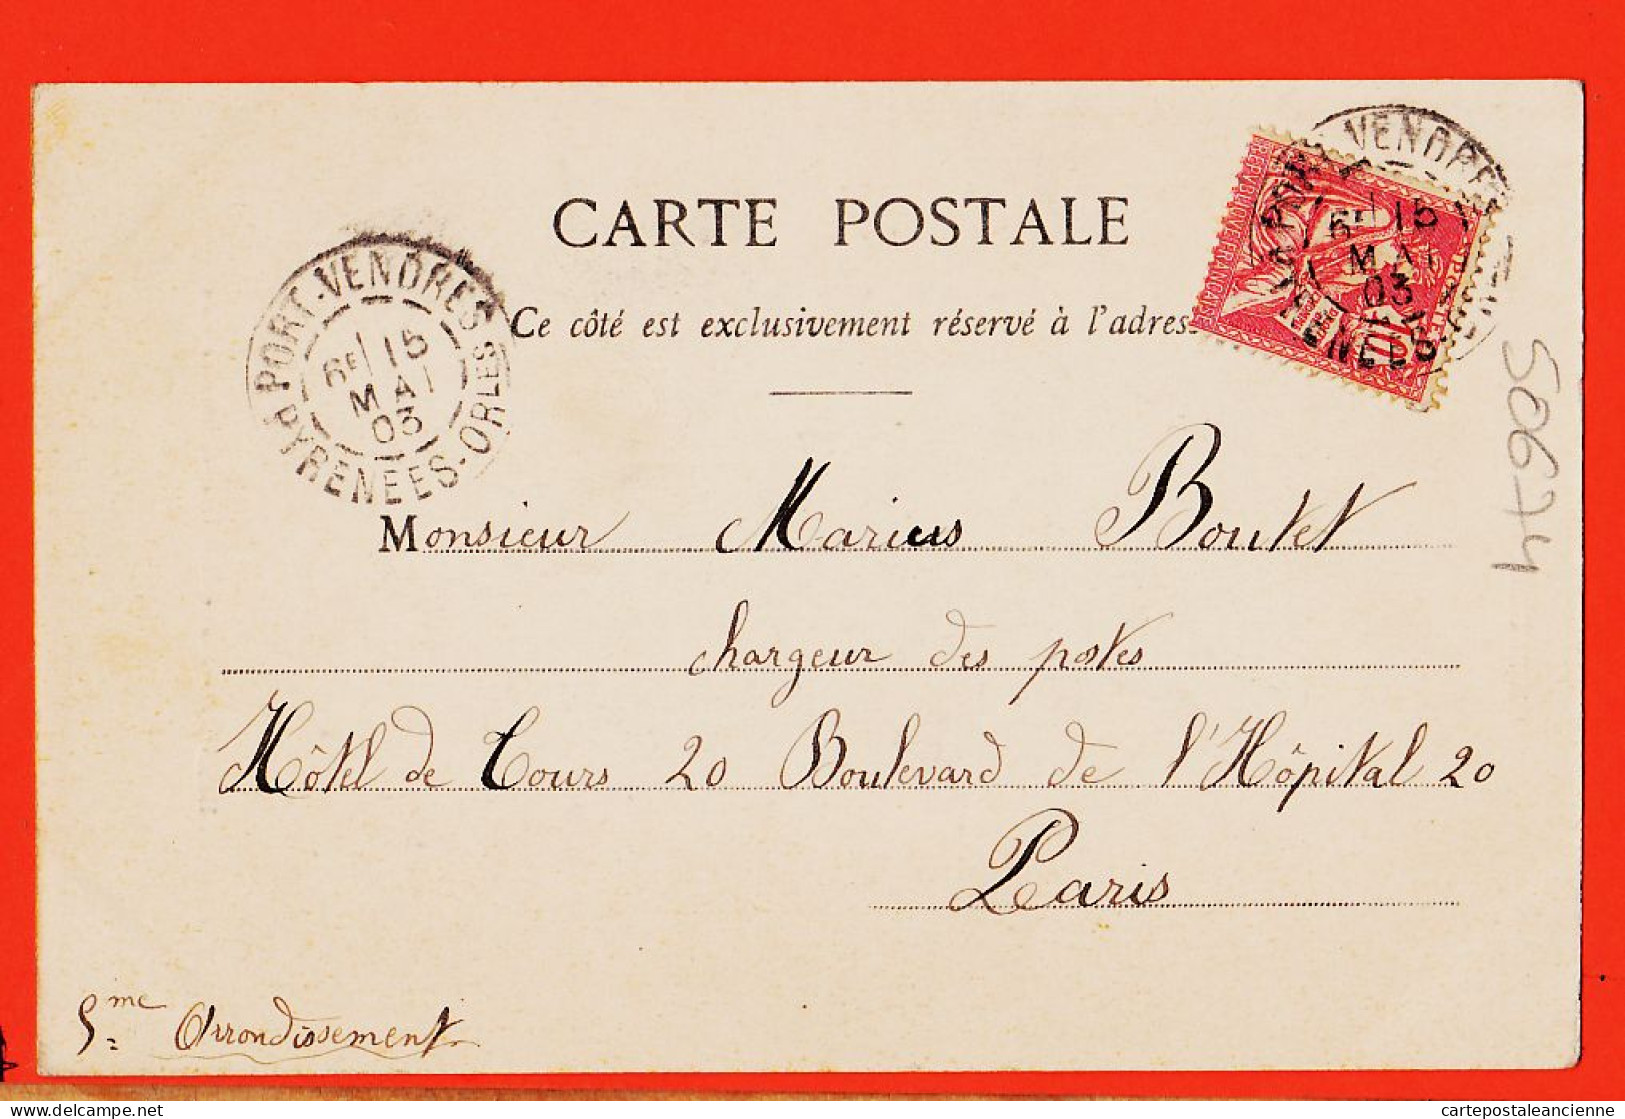 CARTE POSTALE
Ce côté est exclusivement réservé à l'adres
PORT-VENDRES
6E 15
MAI
03
PYRENEES-ORLES
VENDRE
6E 15
MAI
03
REPUBLIQUE FRANÇAISE
10
Monsieur Marius Boutet
chargeur des postes
Hôtel de Tours 20 Boulevard de l'Hôpital 20
Paris
5me Arrondissement
50674
cartepostaleancienne